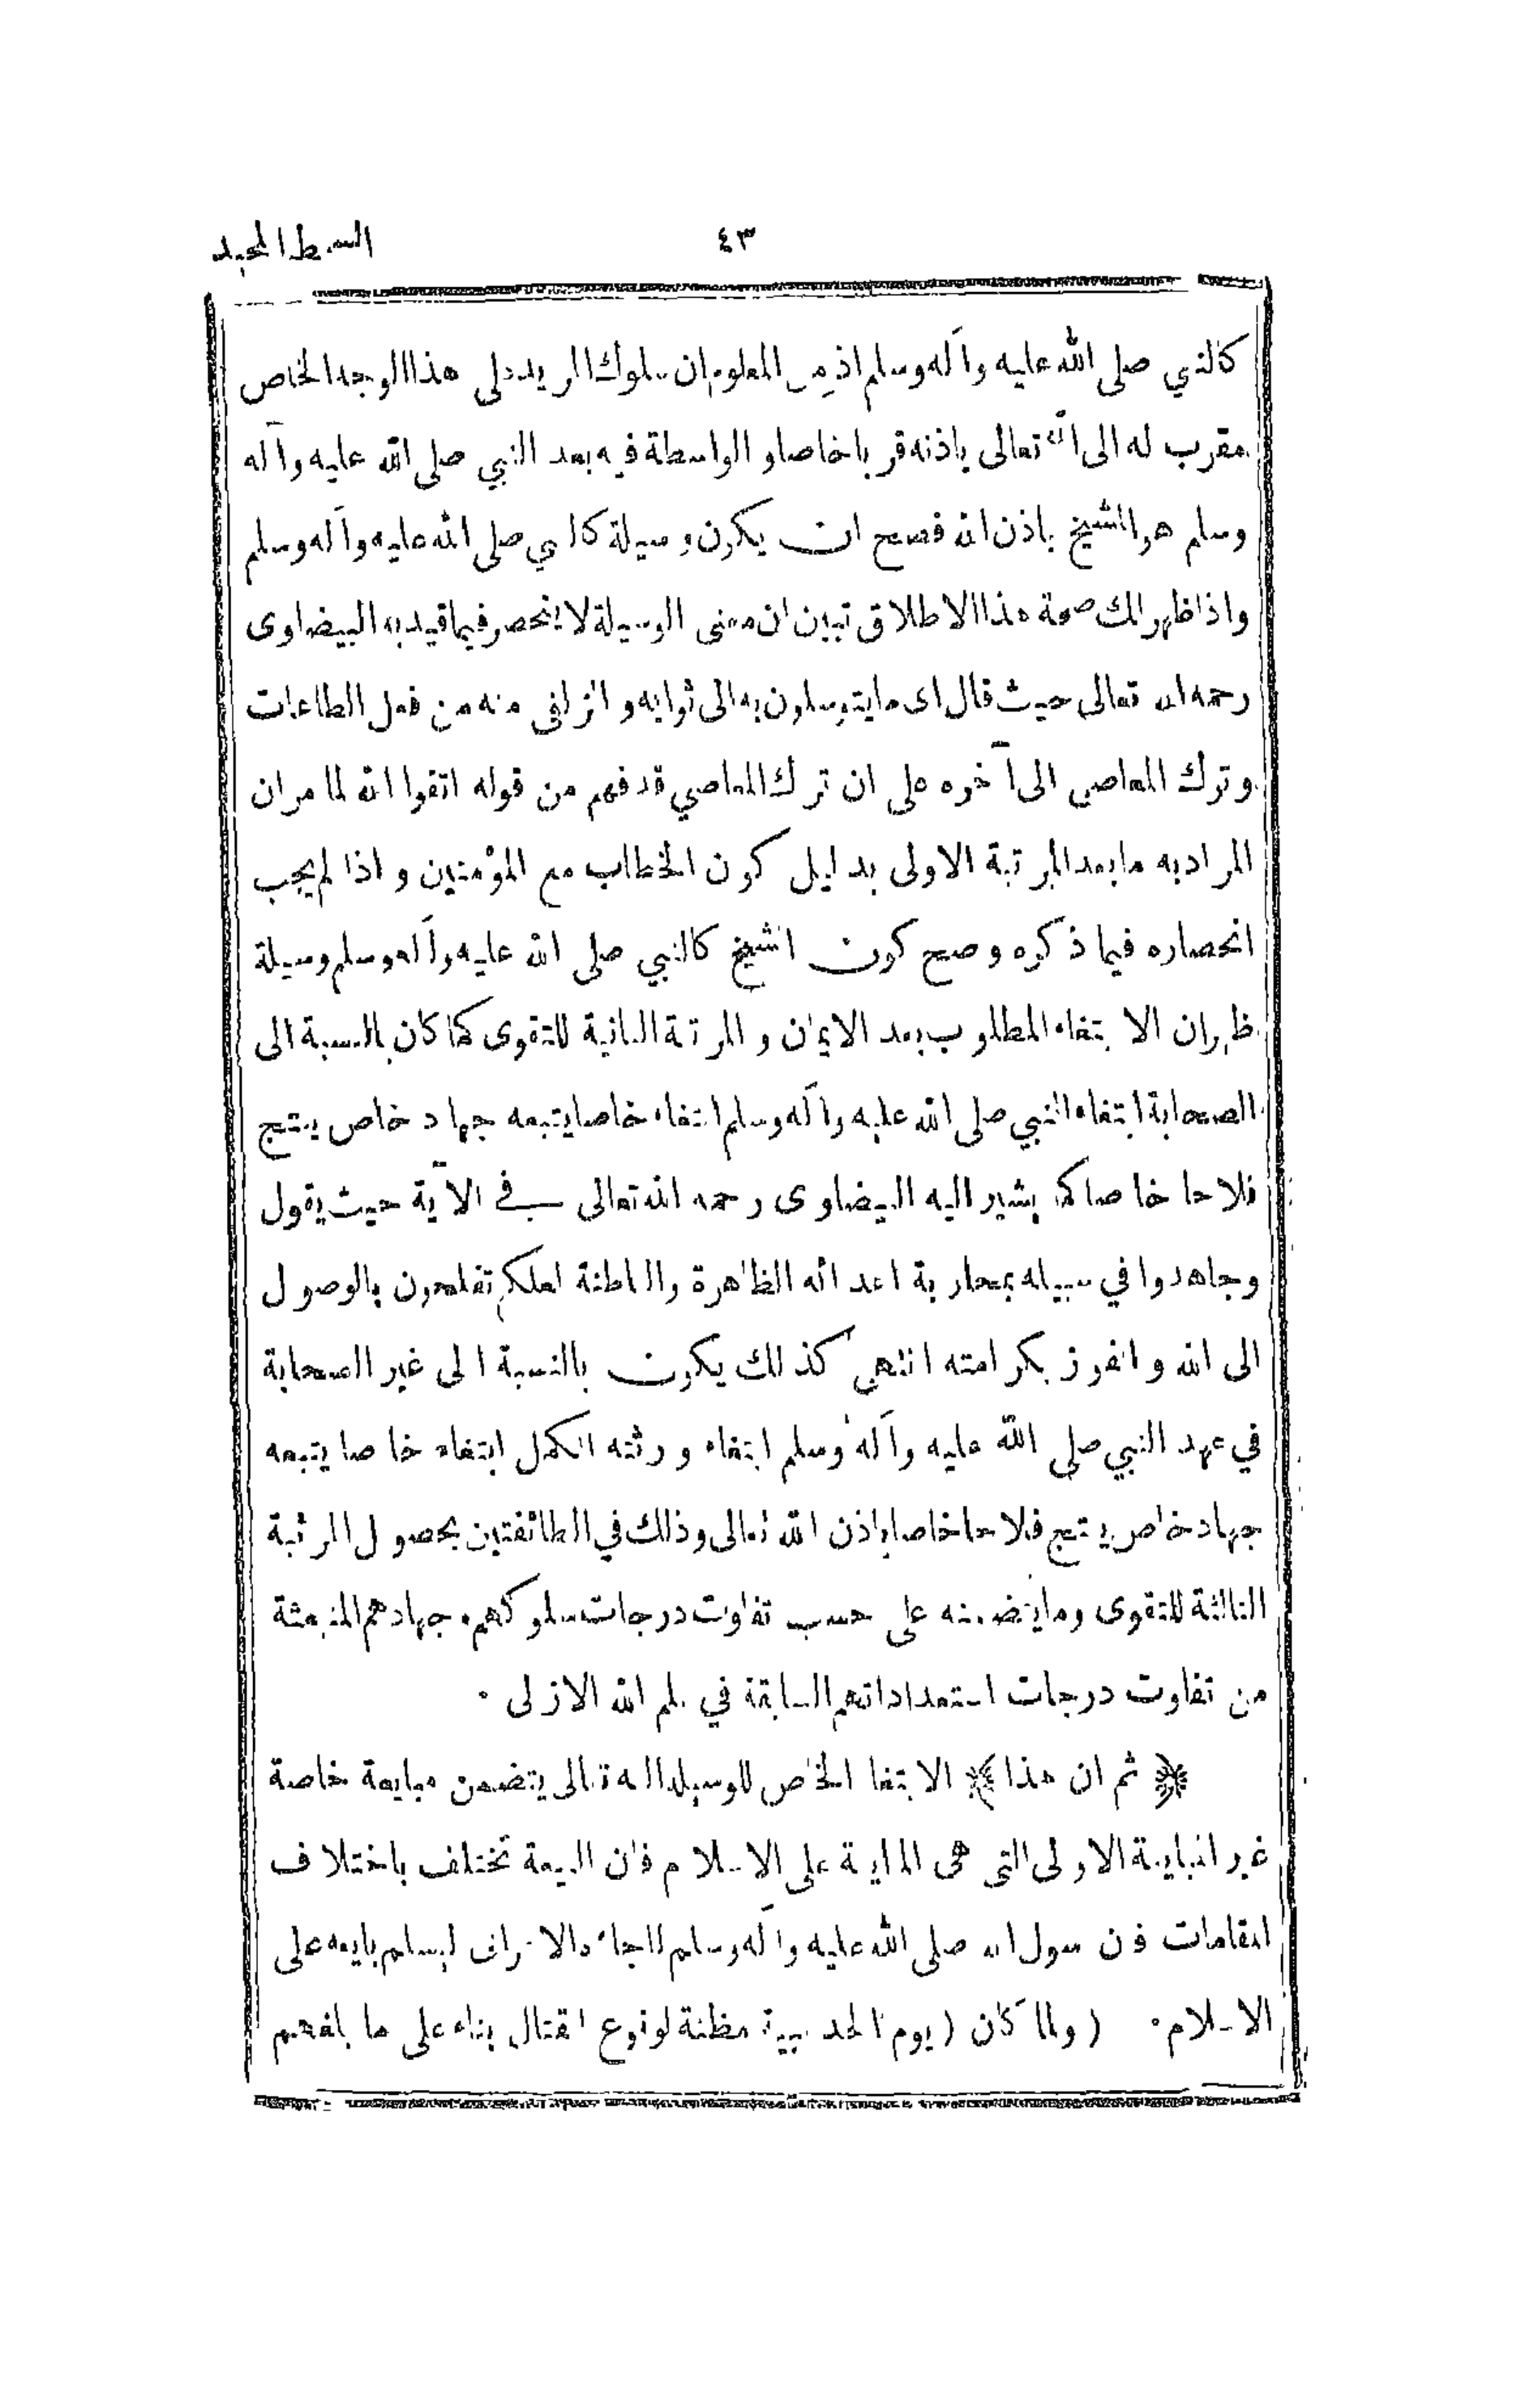 السمط المجيد
٤٣
كالنبي صلى الله عليه وآله وسلم اذ من المعلوم ان سلوك المريد على هذا الوجه الخاص
مقرب له الى الله تعالى باذنه قربا خاصا و الواسطة فيه بعد النبي صلى الله عليه وآله
وسلم هو الشيخ باذن الله فصح ان يكون وسيلة كالنبي صلى الله عليه وآله وسلم
واذا ظهر لك صحة هذا الاطلاق تبين ان معنى الوسيلة لا ينحصر فيما قيد به البيضاوى
رحمه الله تعالى حيث قال اى ما يتوسلون به الى ثوابه و الزلفى منه من فعل الطاعات
وترك المعاصى الى آخره على ان ترك المعاصي قد فهم من قوله اتقوا الله لما مر ان
المراد به ما بعد المرتبة الاولى بدليل كون الخطاب مع المؤمنين و اذا لم يجب
انحصاره فيما ذكره و صح كون الشيخ كالنبي صلى الله عليه وآله وسلم وسيلة
ظهر ان الابتغاء المطلوب بعد الايمان و المرتبة الثانية للتقوى كما كان بالنسبة الى
الصحابة ابتغاء النبي صلى الله عليه وآله وسلم ابتغاء خاصا يتبعه جهاد خاص ينتج
فلاحا خاصا كما يشير اليه البيضاوى رحمه الله تعالى في الآية حيث يقول
وجاهدوا في سبيله بمحاربة اعدائه الظاهرة والباطنة لعلكم تفلحون بالوصول
الى الله و الفوز بكرامته انتهى كذلك يكون بالنسبة الى غير الصحابة
في عهد النبي صلى الله عليه وآله وسلم ابتغاء ورثته الكمل ابتغاء خاصا يتبعه
جهاد خاص ينتج فلاحا خاصا باذن الله تعالى وذلك في الطائفتين بحصول المرتبة
الثالثة للتقوى وما يتضمنه على حسب تفاوت درجات سلوكهم و جهادهم المنبعثة
من تفاوت درجات استعداداتهم السابقة في علم الله الازلى ٠
﴿ ثم ان هذا ﴾ الابتغا الخاص للوسيلة اليه تعالى يتضمن مبايعة خاصة
غير المبايعة الاولى التى هى المبايعة على الاسلام فان البيعة تختلف باختلاف
المقامات فان رسول الله صلى الله عليه وآله وسلم لما جاءه الاعرابى ليسلم بايعه على
الاسلام٠ ( ولما كان ( يوم الحديبية مظنة لوقوع القتال بناء على ما بلغهم